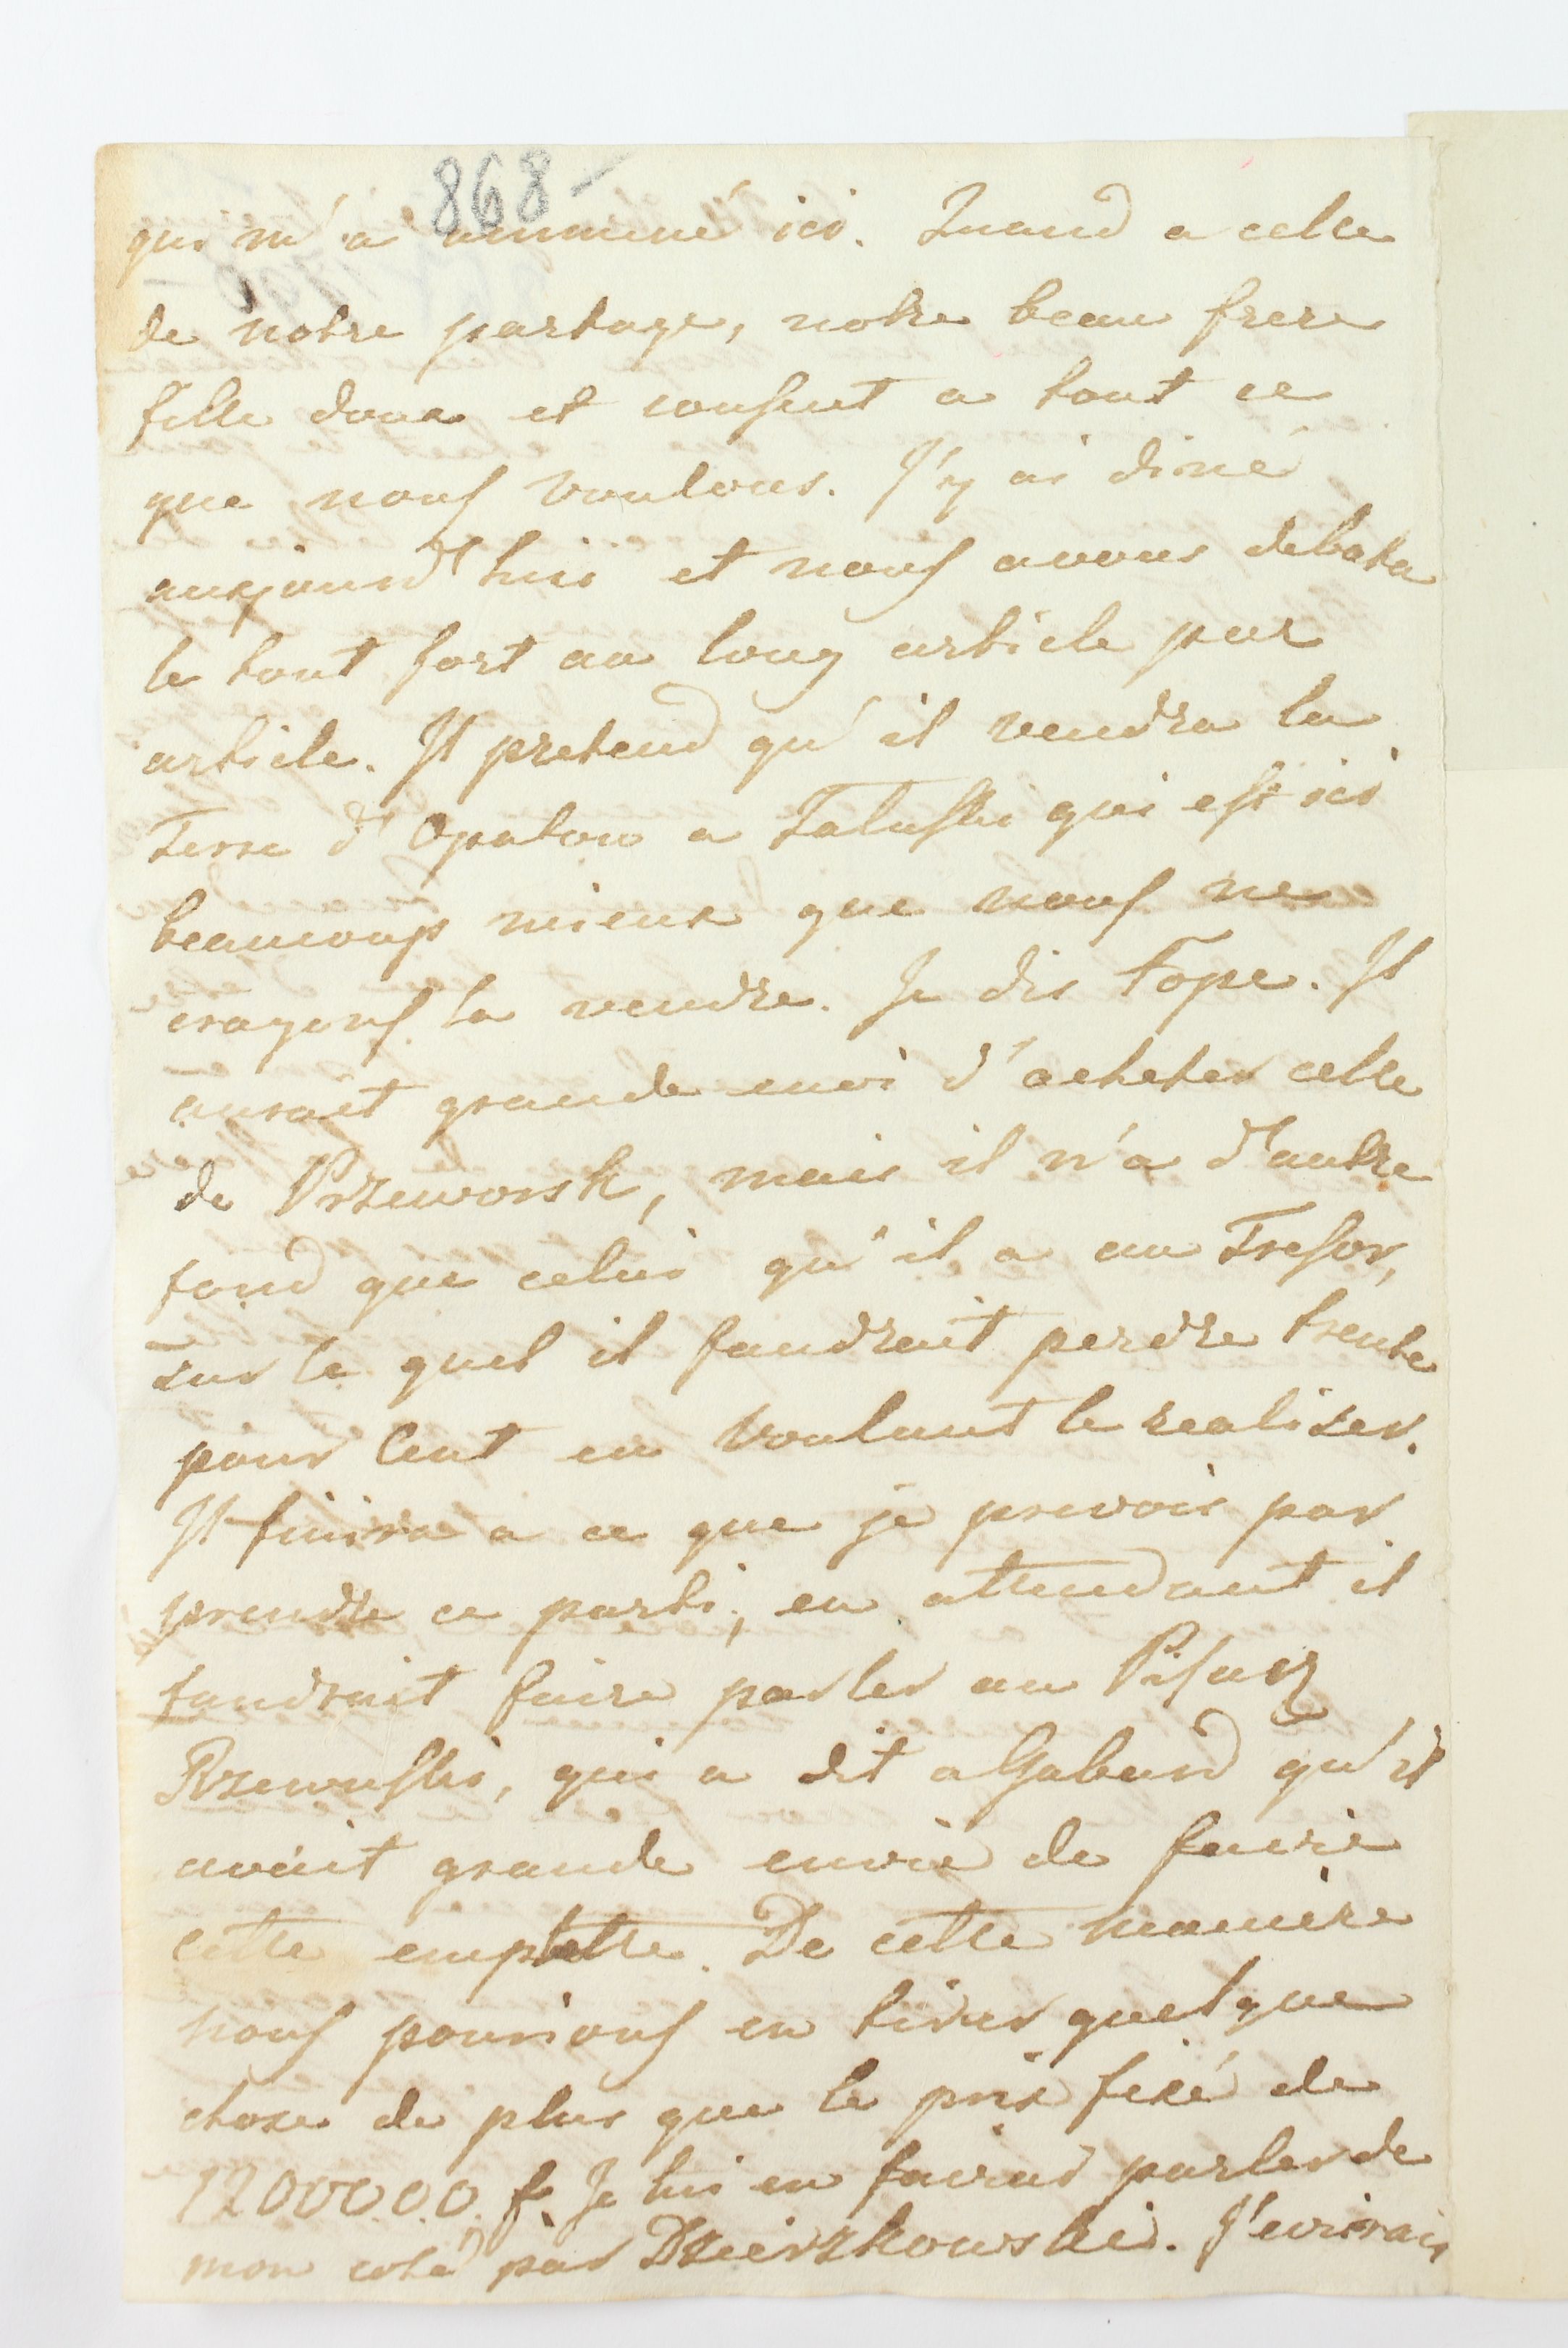 868-
qui m'a ammené ici. Quand a celle
de notre partage, notre beau frere
file doux et consent a tout ce
que nous voulons. J'y ai diné
aujourd'hui et nous avons debatu
le tout fort au long article par
article. Il pretend qu'il vendra la
Terre d'Opatow a Zaluski qui est ici
beaucoup mieux que nous ne
crayons la vendre. Je dis Tope. Il
aurait grande envi d'acheter celle
de Przeworsk, mais il n'a d'autre
fond que celui qu'il a au Tresor,
sur le quel il faudrait perdre trente
pour Cent en voulant le realiser.
Il finira a ce que je prevois par
prendre ce parti, en attendant il
faudrait faire parler au Pisarz
Rzewuski, qui a dit a Gabard qu'il
avait grande envie de faire
cette emplette. De cette maniere
nous pourions en tirer quelque
chose de plus que le prix fixé de
1200000. f. Je lui en fairai parler de
mon coté par Dzierzkowski. J'ecrirais